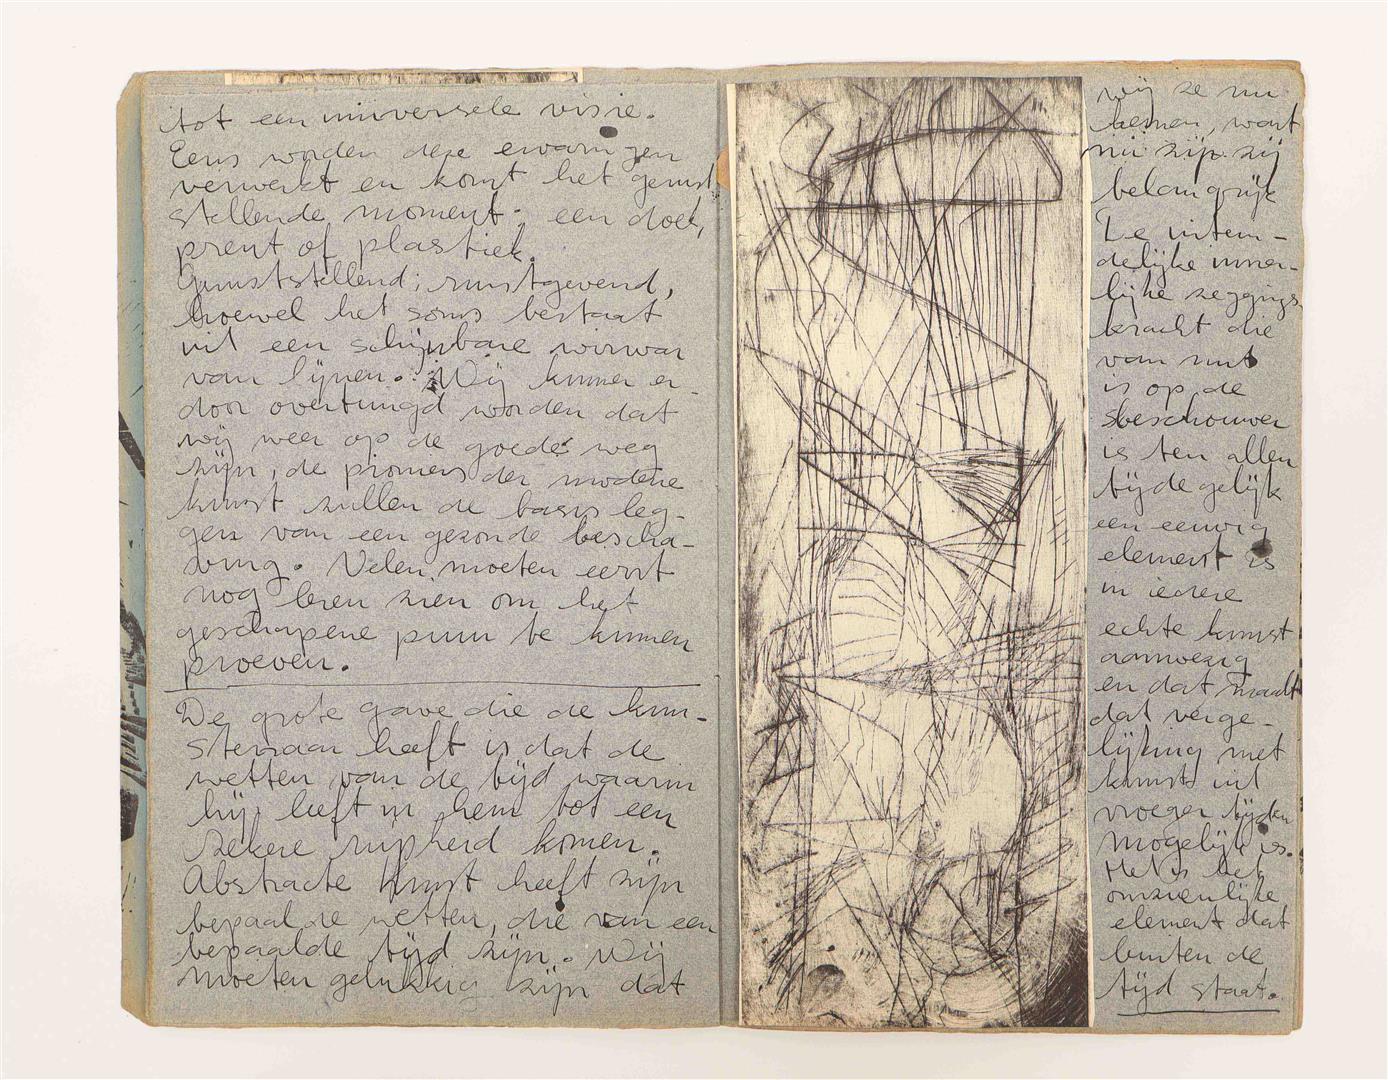 tot een universele visie.
Eens worden deze ervaringen
verwerkt en komt het gerust
stellende moment; een doek,
prent of plastiek.
Geruststellend; rustgevend,
hoewel het soms bestaat
uit een schijnbare wirwar
van lijnen. Wij kunnen er
door overtuigd worden dat
wij weer op de goede weg
zijn, de pioniers der moderne
kunst zullen de basis leg-
gen van een gezonde bescha-
ving. Velen moeten eerst
nog leren zien om het
geschapene puur te kunnen
proeven.
De grote gave die de kun-
stenaar heeft is dat de
wetten van de tijd waarin
hij leeft in hem tot een
zekere rijpheid komen.
Abstracte kunst heeft zijn
bepaalde wetten, die van een
bepaalde tijd zijn. Wij
moeten gelukkig zijn dat
wij ze nu
kennen, want
nu zijn zij
belangrijk
De uitein-
delijke inner-
lijke zeggings
kracht die
van uit
is op de
beschouwer
is ten allen
tijde gelijk
een eeuwig
element is
in iedere
echte kunst
aanwezig
en dat maakt
dat verge-
lijking met
kunst uit
vroeger tijden
mogelijk is.
Het is het
onzienlijke
element dat
buiten de
tijd staat.